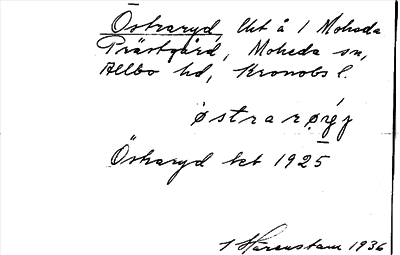 Östraryd, lht å 1 Moheda
Prästgård, Moheda sn,
Allbo hd, Kronobs l.
østrarø̜ŕj
Östraryd kt 1925
1936